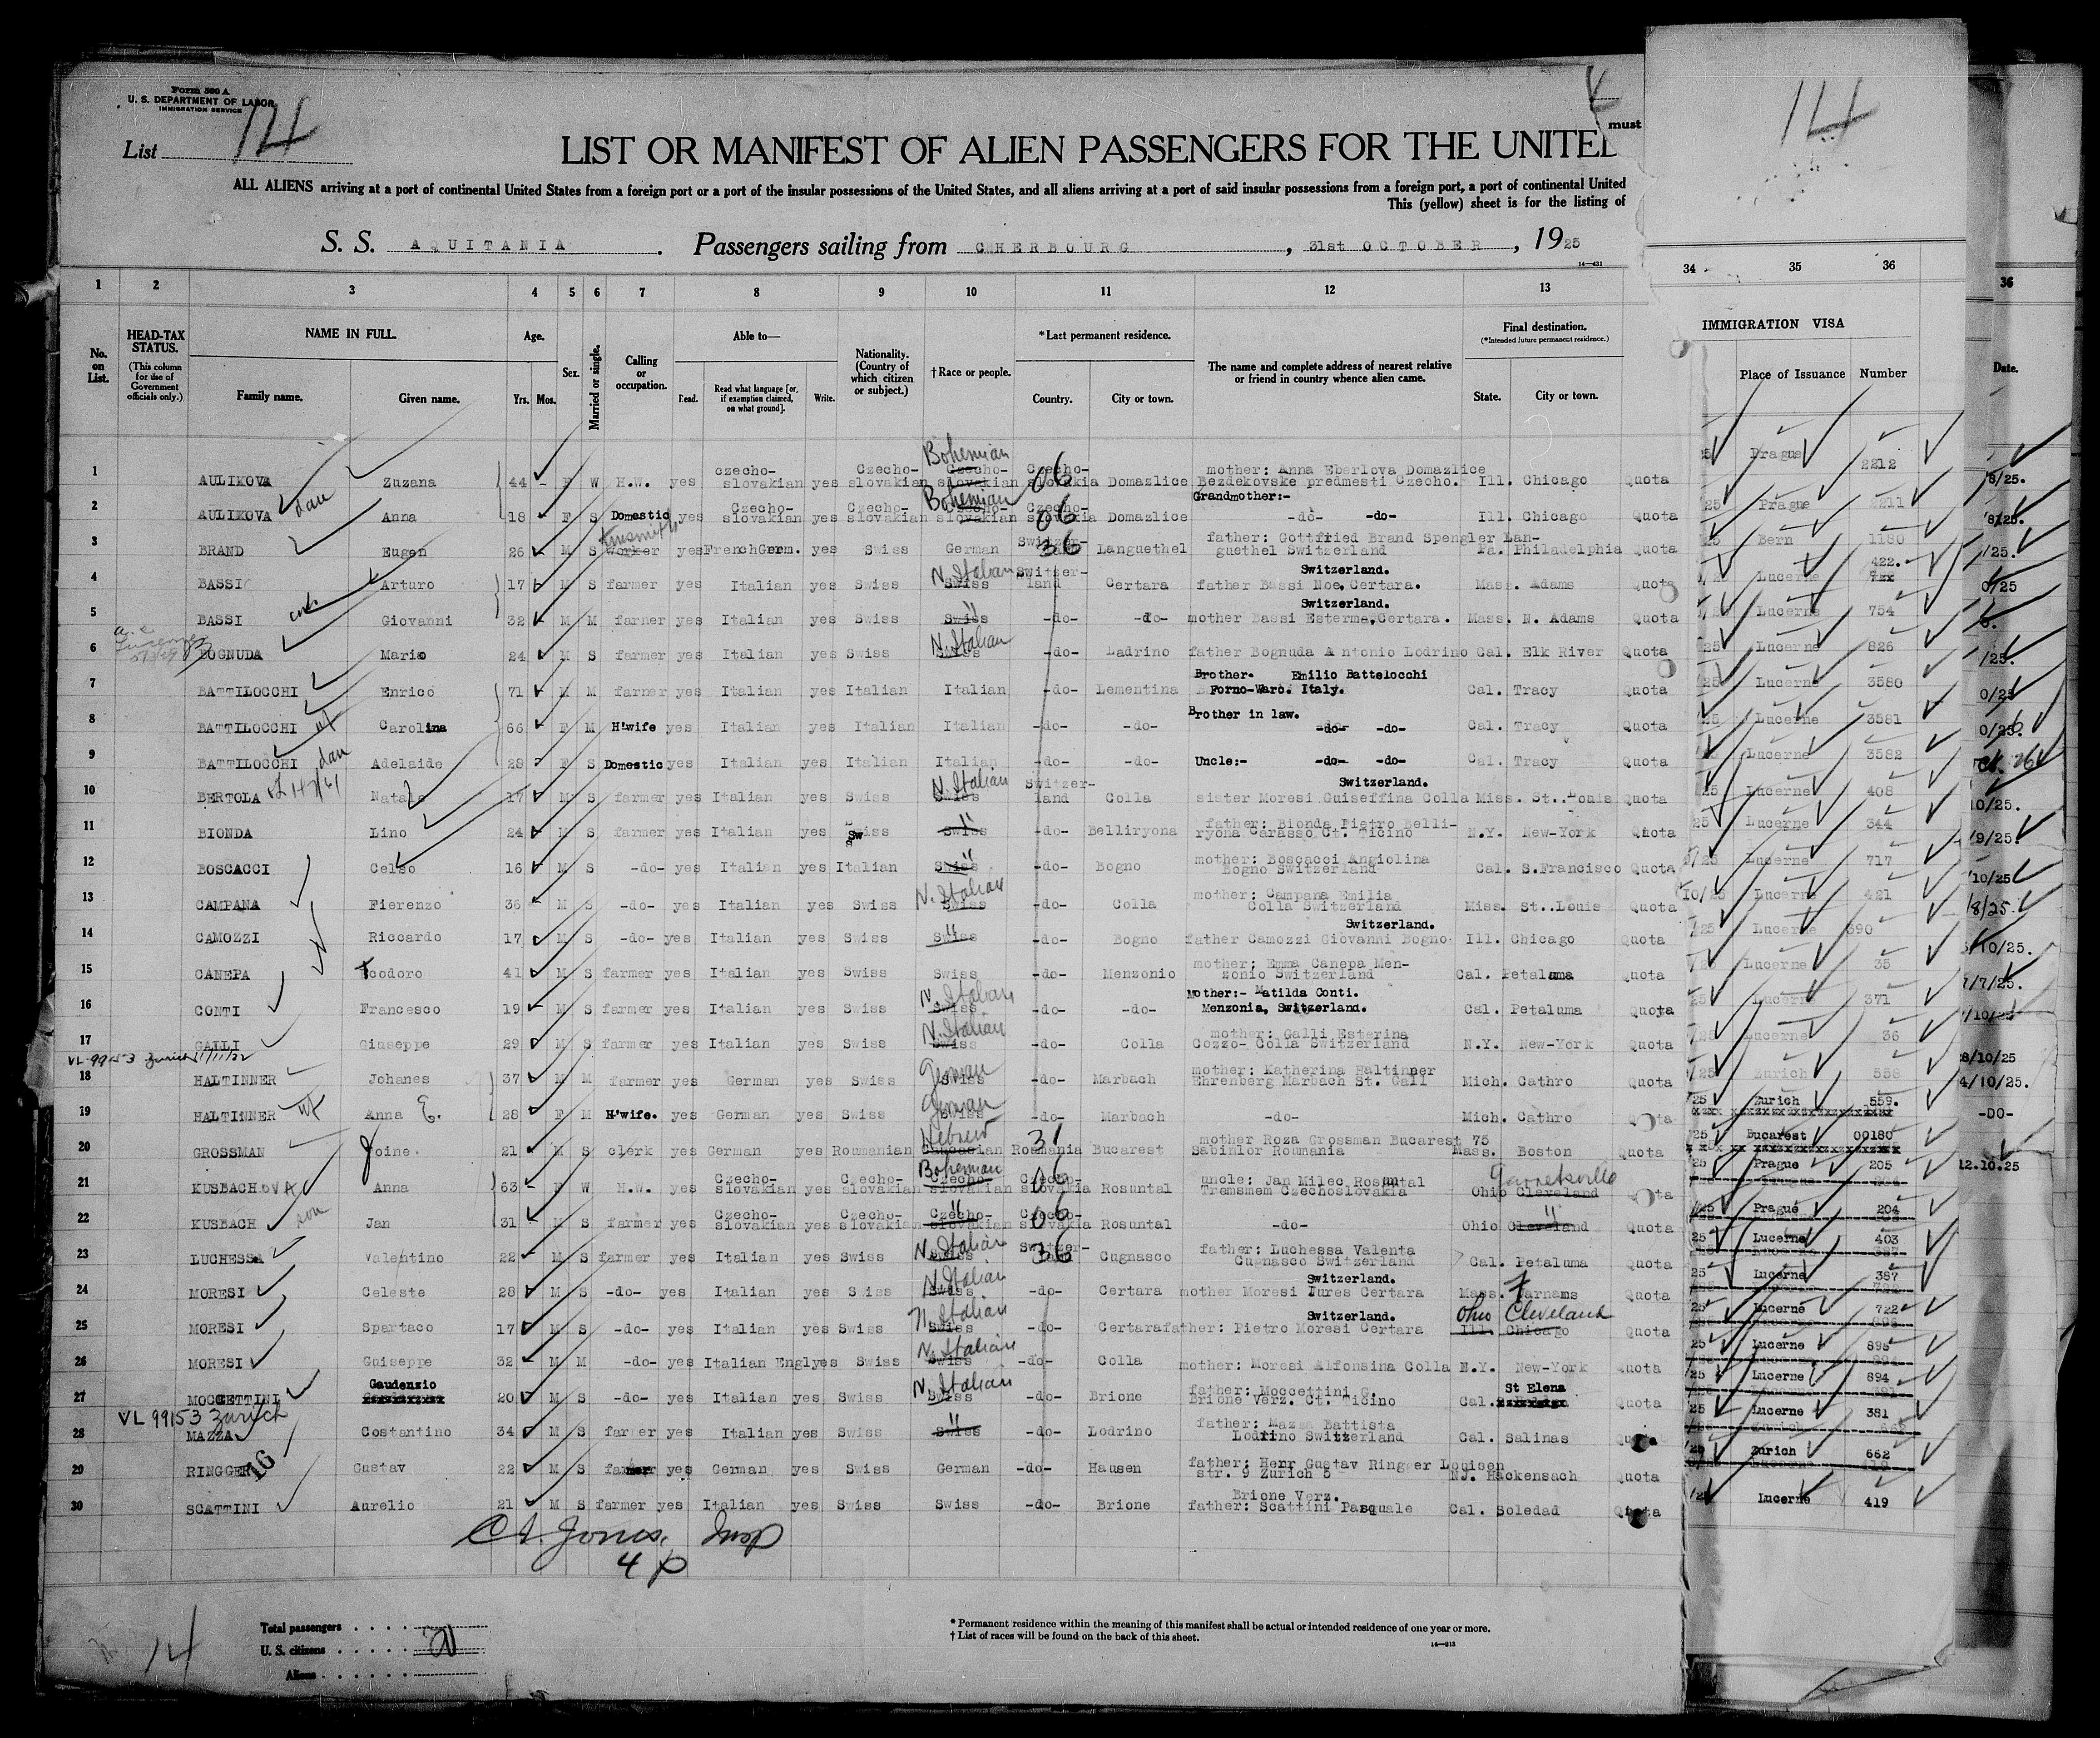 Form 500 A
U. S. DEPARTMENT OF LABOR
IMMIGRATION SERVICE
List 14
must
14
LIST OR MANIFEST OF ALIEN PASSENGERS FOR THE UNITED
ALL ALIENS arriving at a port of continental United States from a foreign port or a port of the insular possessions of the United States, and all aliens arriving at a port of said insular possessions from a foreign port, a port of continental United
This (yellow) sheet is for the listing of
S. S. AQUITANIA. Passengers sailing from CHERBOURG, 31st OCTOBER, 1925
14—431
1 2 3 4 5 6 7 8 9 10 11 12 13 34 35 36 36
No. on List.
HEAD-TAX STATUS.
(This column for use of Government officials only.)
NAME IN FULL.
Family name. Given name.
Age.
Yrs. Mos.
Sex.
Married or single.
Calling or occupation.
Able to—
Read. Read what language [or, if exemption claimed, on what ground]. Write.
Nationality. (Country of which citizen or subject.)
†Race or people.
*Last permanent residence.
Country. City or town.
The name and complete address of nearest relative or friend in country whence alien came.
Final destination.
(*Intended future permanent residence.)
State. City or town.
IMMIGRATION VISA
Place of Issuance Number Date.
1 AULIKOVA Zuzana 44 - F W H.W. yes czecho-slovakian yes Czecho-slovakian Bohemian Czecho-slovakian Czecho-slovakia 06 Domazlice mother: Anna Eberlova Domazlice Bezdekovske predmesti Czecho. Ill. Chicago Quota 25 Prague 2212 8/25.
2 AULIKOVA dau Anna 18 F S Domestic yes Czecho-slovakian yes Czecho-slovakian Bohemian Czecho-slovakian Czecho-slovakia 06 Domazlice Grandmother:- -do- -do- Ill. Chicago Quota 25 Prague 2211 8/25.
3 BRAND Eugen 26 M S Tinsmith worker yes French Germ. yes Swiss German Switzer- 36 Languethel father: Gottfried Brand Spengler Lan-guethel Switzerland Pa. Philadelphia Quota 25 Bern 1180 /25.
4 BASSI Arturo 17 M S farmer yes Italian yes Swiss N. Italian Swiss Switzer-land Certara father Bassi Noe, Certara. Switzerland. Mass. Adams Quota Lucerne 422. 0/25
5 BASSI Giovanni 32 M M farmer yes Italian yes Swiss " Swiss -do- -do- mother Bassi Esterma, Certara. Switzerland. Mass. N. Adams Quota Lucerne 754
6 BOGNUDA Mario 24 M S farmer yes Italian yes Swiss N. Italian -do- Ladrino father Bognuda Antonio Lodrino Cal. Elk River Quota 25 Lucerne 826 /25.
7 BATTILOCCHI Enrico 71 M M farmer yes Italian yes Italian Italian -do- Lementina Brother- Emilio Battelocchi Forno-Varo. Italy. Cal. Tracy Quota 25 Lucerne 3580 0/25
8 BATTILOCCHI wf Carolina 66 F M H'wife yes Italian yes Italian Italian -do- -do- Brother in law. -do- -do- Cal. Tracy Quota 25 Lucerne 3581 0/25.
9 BATTILOCCHI dau Adelaide 28 F S Domestic yes Italian yes Italian Italian -do- -do- Uncle:- -do- -do- Cal. Tracy Quota Lucerne 3582
10 BERTOLA Natale 17 M S farmer yes Italian yes Swiss N. Italian Swiss Switzer-land Colla sister Moresi Guiseffina Colla Switzerland. Miss. St..Louis Quota 25 Lucerne 408 10/25.
11 BIONDA Lino 24 M S farmer yes Italian yes Swiss " Swiss -do- Belliryona father: Bionda Pietro Belli-ryona Carasso Ct. Ticino N.Y. New-York Quota 25 Lucerne 344 /9/25.
12 BOSCACCI Celso 16 M S -do- yes Italian yes Italian " Swiss -do- Bogno mother: Boscacci Angiolina Bogno Switzerland Cal. S.Francisco Quota /25 Lucerne 717 /10/25
13 CAMPANA Fierenzo 36 M S -do- yes Italian yes Swiss N. Italian Swiss -do- Colla mother: Campana Emilia Colla Switzerland Miss. St..Louis Quota 10/25 Lucerne 421 /8/25
14 CAMOZZI Riccardo 17 M S -do- yes Italian yes Swiss " Swiss -do- Bogno father Camozzi Giovanni Bogno Switzerland. Ill. Chicago Quota 25 Lucerne 390 /10/25.
15 CANEPA Teodoro 41 M S farmer yes Italian yes Swiss Swiss -do- Menzonio mother: Emma Canepa Men-zonio Switzerland Cal. Petaluma Quota 25 Lucerne 35 7/7/25.
16 CONTI Francesco 19 M S farmer yes Italian yes Swiss N. Italian Swiss -do- -do- Mother:- Matilda Conti. Menzonia, Switzerland. Cal. Petaluma Quota 25 Lucerne 371 /10/25
17 GALLI Giuseppe 29 M S farmer yes Italian yes Swiss N. Italian Swiss -do- Colla mother: Galli Esterina Cozzo- Colla Switzerland N.Y. New-York Quota 25 Lucerne 36 8/10/25
VL 99153 Zurich 1/11/32
18 HALTINNER Johanes 37 M M farmer yes German yes Swiss German Swiss -do- Marbach mother: Katherina Haltinner Ehrenberg Marbach St. Gall Mich. Cathro Quota 25 Zurich 558 4/10/25.
19 HALTINNER wf Anna E. 28 F M H'wife. yes German yes Swiss German Swiss -do- Marbach -do- Mich. Cathro Quota 25 Zurich 559. -DO-
20 GROSSMAN Joine 21 M S clerk yes German yes Roumanian Hebrew Roumania 31 Bucarest mother Roza Grossman Bucarest 75 Sabinlor Roumania Mass. Boston Quota 25 Bucarest 00180
21 KUSBACHOVA Anna 63 - F W H.W. yes Czecho-slovakian yes Czecho-slovakian Bohemian Czecho-slovakian Czecho-slovakia 06 Rosuntal uncle: Jan Milec Rosuntal Tremsmem Czechoslovakia Ohio Cleveland Garretsville Quota 25 Prague 205 12.10.25
22 KUSBACH son Jan 31 M S farmer yes Czecho-slovakian yes Czecho-slovakian " Czecho-slovakian Czecho-slovakia 06 Rosuntal -do- Ohio Cleveland " Quota 25 Prague 204
23 LUCHESSA Valentino 22 M S farmer yes Italian yes Swiss N. Italian Swiss Switzer- 36 Cugnasco father: Luchessa Valenta Cugnasco Switzerland Cal. Petaluma Quota 25 Lucerne 403
24 MORESI Celeste 28 M S -do- yes Italian yes Swiss N. Italian Swiss -do- Certara mother Moresi Dures Certara Switzerland. Mass. Farnams Quota 25 Lucerne 387
25 MORESI Spartaco 17 M S -do- yes Italian yes Swiss N. Italian Swiss -do- Certara father: Pietro Moresi Certara Switzerland. Ill. Chicago Ohio Cleveland Quota 25 Lucerne 722
26 MORESI Guiseppe 32 M M -do- yes Italian Engl yes Swiss N. Italian Swiss -do- Colla mother: Moresi Alfonsina Colla N.Y. New-York Quota 25 Lucerne 895
27 MOCCETTINI Gaudenzio 20 M S -do- yes Italian yes Swiss N. Italian Swiss -do- Brione father: Moccettini G. Brione Verz. Ct. Ticino Cal. St Elena Quota 25 Lucerne 894
VL 99153 Zurich
28 MAZZA Costantino 34 M S farmer yes Italian yes Swiss " Swiss -do- Lodrino father: Mazza Battista Lodrino Switzerland Cal. Salinas Quota 25 Lucerne 381
29 RINGGER 16 Gustav 22 M S farmer yes German yes Swiss German -do- Hausen father: Herr Gustav Ringger Louisen str. 9 Zurich 5 NJ. Hackensach Quota 25 Zurich 662
30 SCATTINI Aurelio 21 M S farmer yes Italian yes Swiss Swiss -do- Brione father: Scattini Pasquale Brione Verz. Cal. Soledad Quota Lucerne 419
Jones, Insp
4 p
14
Total passengers
U. S. citizens
Aliens
* Permanent residence within the meaning of this manifest shall be actual or intended residence of one year or more.
† List of races will be found on the back of this sheet.
14—213